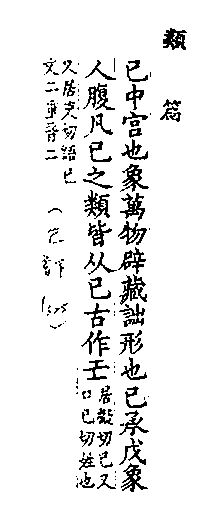 類篇
己中宮也象萬物辟藏詘形也己承戊象
人腹凡己之類皆从己古作𢀒居擬切己又
口己切姓也
又居吏切語已
文二重音二